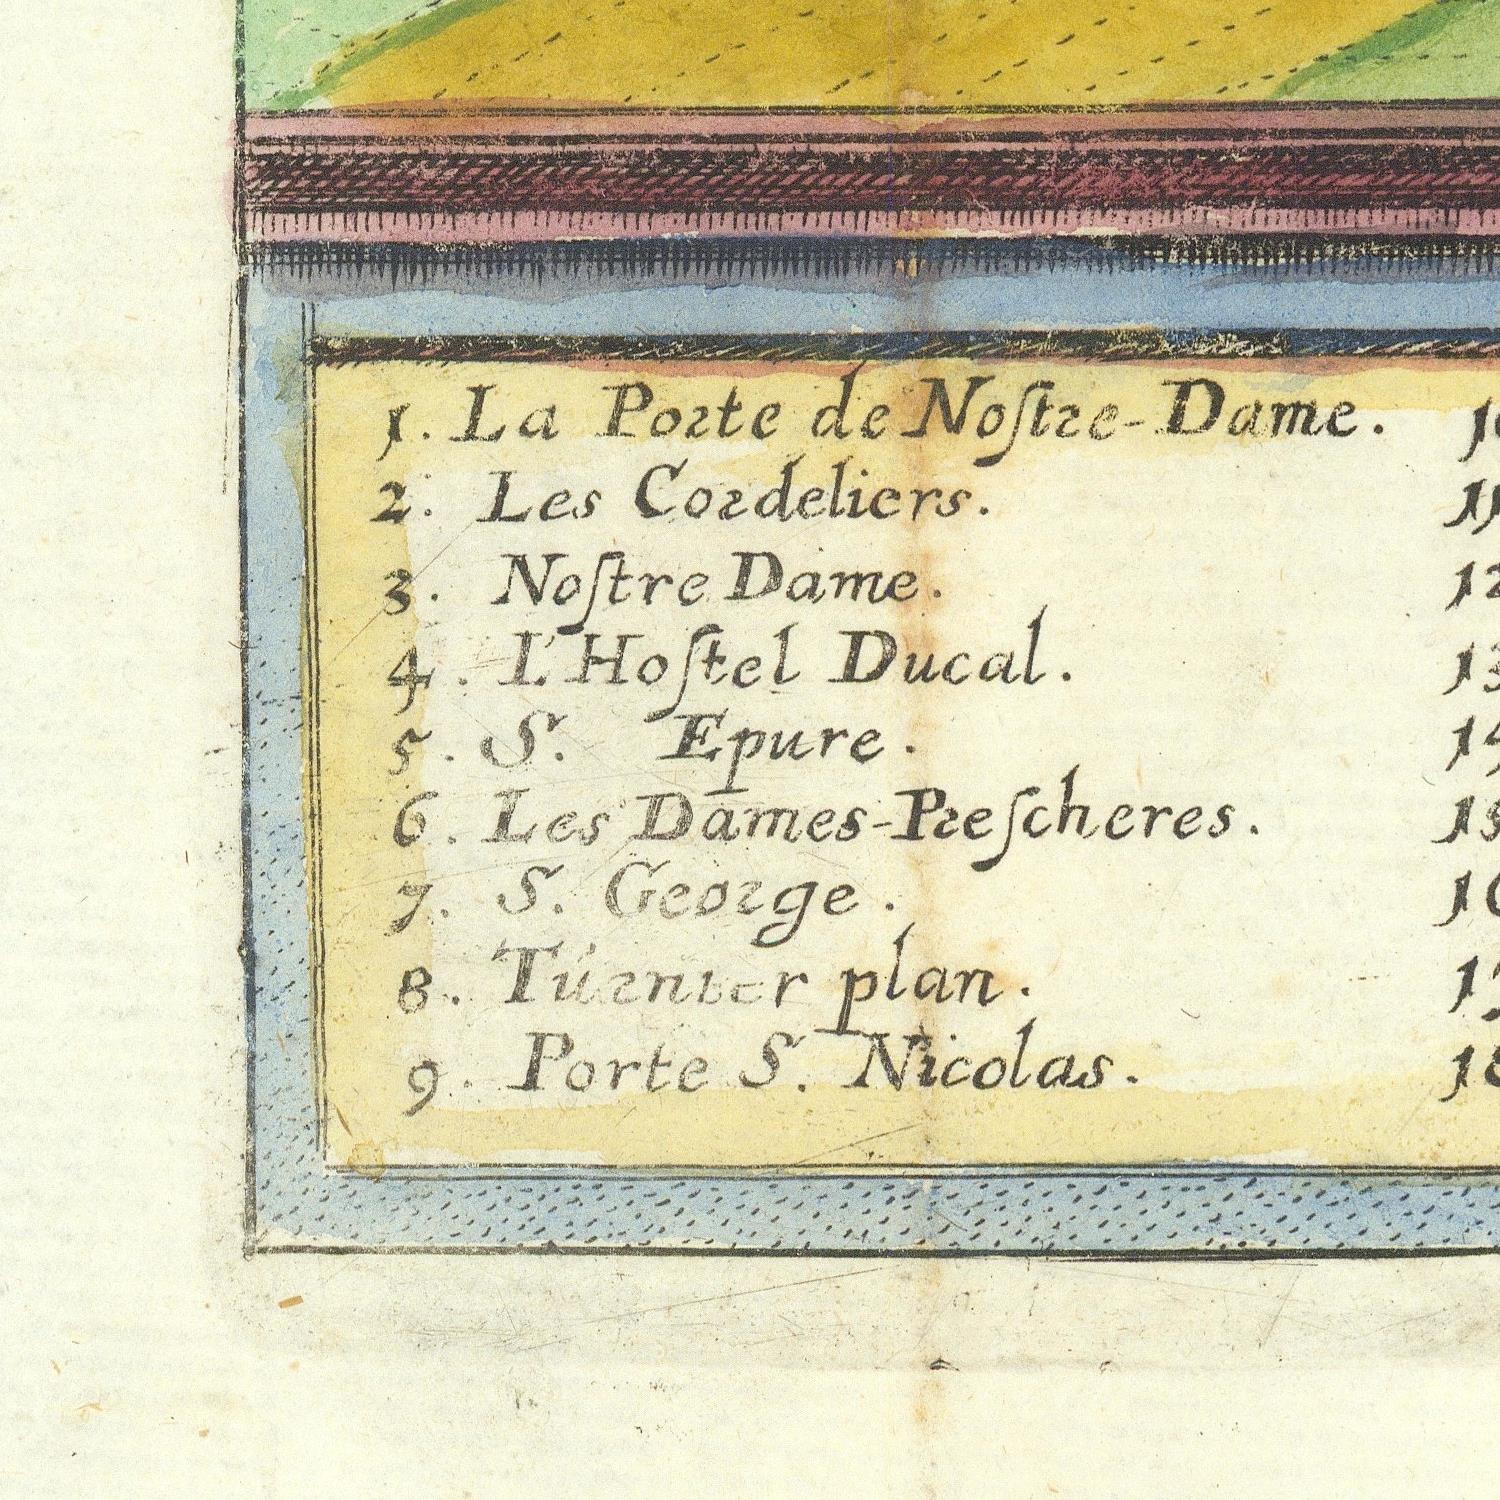 1. La Porte de Noſtre-Dame.
2. Les Cordeliers.
3. Noſtre Dame.
4. L'Hoſtel Ducal.
5. S. Epure.
6. Les Dames-Preſcheres.
7. S. George.
8. Turnier plan.
9. Porte S. Nicolas.
11
12
13
14
15
17
18